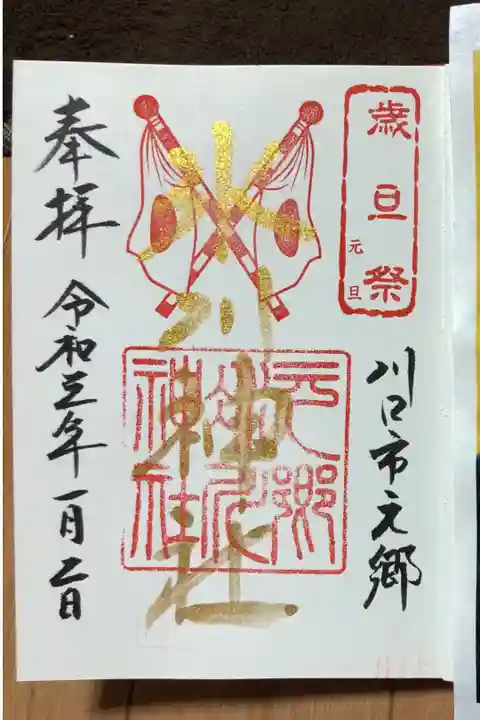 歳旦祭
元旦
川口市元郷
氷川神社
元郷氷川神社
奉拝
令和三年一月二日